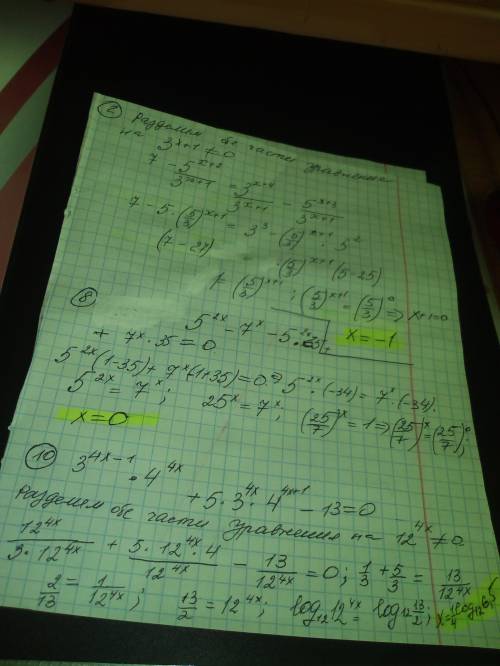 ② Разделим обе части уравнения
на 3^{x+1} ≠ 0
7 - 5^{x+2}/3^{x+1} = 3^{x+4}/3^{x+1} - 5^{x+3}/3^{x+1}
7 - 5·(5/3)^{x+1} = 3^3 - (5/3)^{x+1} · 5^2
(7 - 27) (5/3)^{x+1} (5-25)
1 = (5/3)^{x+1} ; (5/3)^{x+1} = (5/3)^0 ⇒ x+1=0
x = -1
⑧ 5^{2x} - 7^x - 5^{2x}·35+
+ 7^x · 35 = 0
5^{2x}(1-35) + 7^x(-1+35) = 0 ⇒ 5^{2x}·(-34) = 7^x·(-34).
5^{2x} = 7^x ; 25^x = 7^x ; (25/7)^x = 1 ⇒ (25/7)^x = (25/7)^0 ;
x = 0
⑩ 3^{4x-1} · 4^{4x}
+ 5·3^{4x}·4^{4x+1} - 13 = 0
Разделим обе части уравнения на 12^{4x} ≠ 0
12^{4x}/3·12^{4x} + 5·12^{4x}·4/12^{4x} - 13/12^{4x} = 0 ; 1/3 + 5/3 = 13/12^{4x}
2/13 = 1/12^{4x} ; 13/2 = 12^{4x} ; log_{12}12^{4x} = log_{12} 13/2 ; x = 1/4 log_{12} 6,5